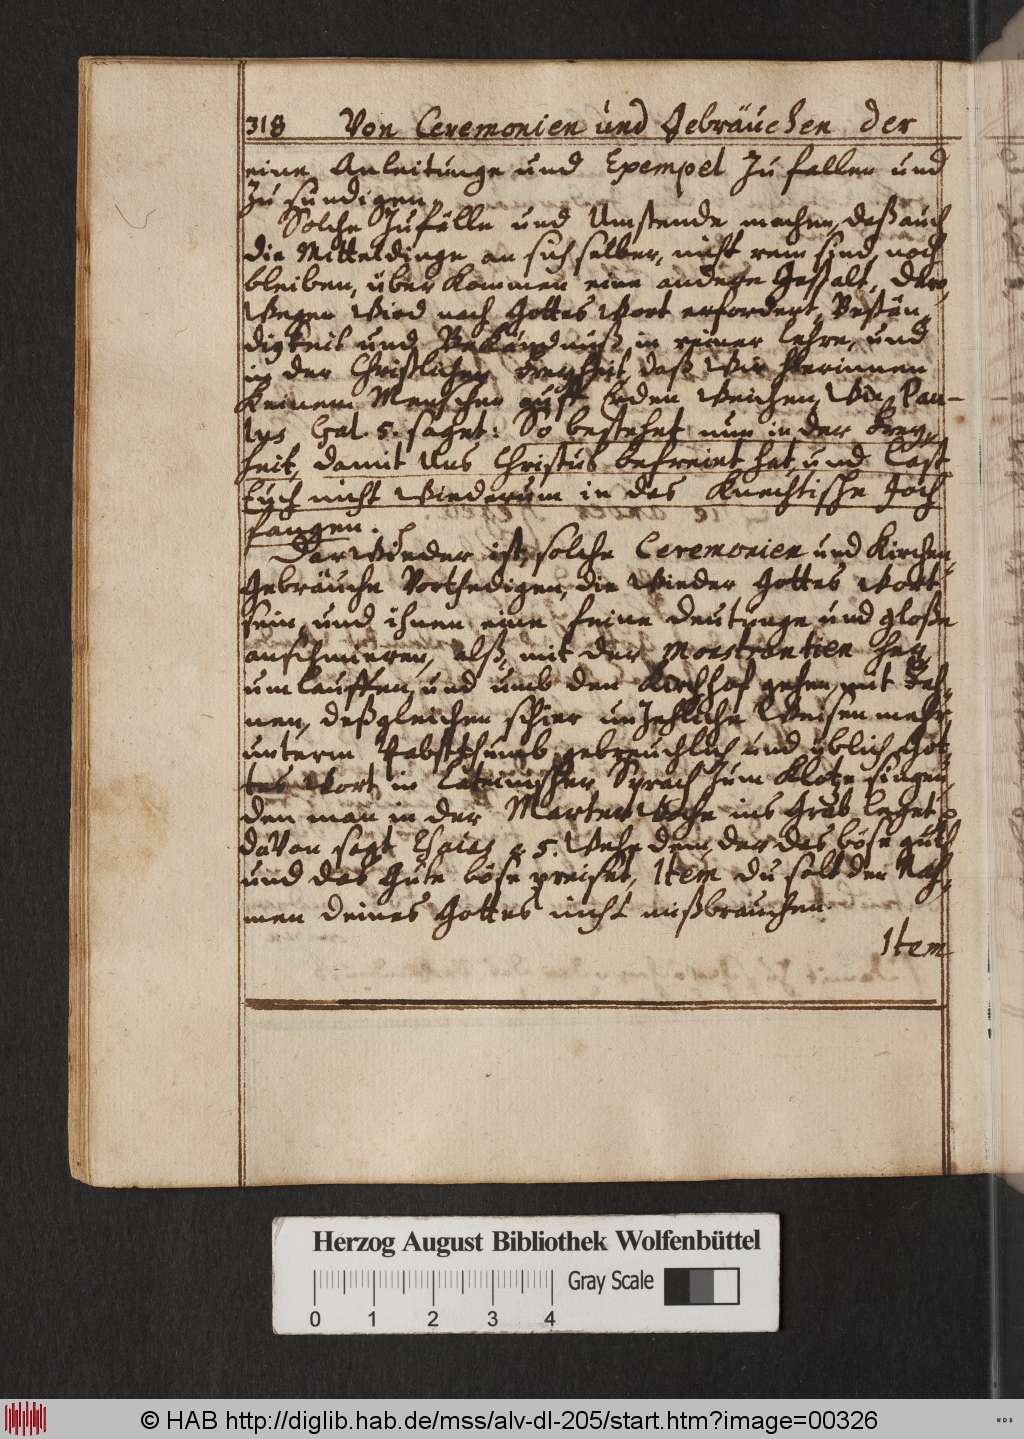 318 Von Ceremonien und Gebräuchen der
eine Anleitunge und Exempel zu fallen und
zu sündigen.
Solche Zufälle und Umstende machen, daß auch
die Mitteldinge an sich selber, nicht rein sind, noch
bleiben, über kommen eine andere Gestalt, Dero,
wegen wird nach Gottes Wort erfordert, Bestän,
digkeit und Bekändnuß in reiner Lehre, und
in der Christlichen Freyheit, daß wir hierinnen
keinem Menschen auff Erden weichen, wie Pau-
lus Gal. 5. saget: So bestehet nun in der Frey,
heit, damit uns Christus befreiet hat, und Last
Euch nicht wiederum in das Knechtische Joch
fangen.
Darwieder ist, solche Ceremonien und Kirchen,
Gebräuche Vorthedigen, die wieder Gottes Wort
sein, und ihnen eine feine deutunge und gloße
anschmieren, alß, mit der Monstrantien her,
um lauffen, und umb den Kirchhof gehen, mit Fah,
nen, deßgleichen schier unzehliche Weisen mehr,
unterm Pabstthumb gebreuchlich und üblich, Got,
tes Wort in Lateinischer Sprach zum Klotze singen,
den man in der Marter Woche ins Grab leget
davon sagt Esaias c. 5. Wehe dem, der das böse guth
und das Gute böse preiset, Item du solt den Nah,
men deines Gottes nicht mißbrauchen.
Item
Herzog August Bibliothek Wolfenbüttel
Gray Scale
0 1 2 3 4
© HAB http://diglib.hab.de/mss/alv-dl-205/start.htm?image=00326